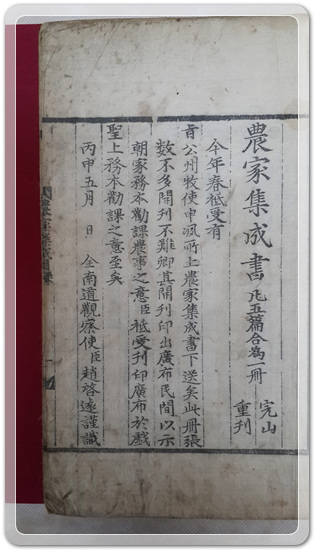 農家集成書 凡五篇合為一冊 完山
重刊
今年春祗受有
旨公州牧使申洬所上農家集成書下送矣此冊張
數不多開刊不難卿其開刊印出廣布民間以示
朝家務本勸課農事之意臣祗受刊印廣布於戲
聖上務本勸課之意至矣
丙申五月 日 全南道觀察使臣趙啓遠謹識